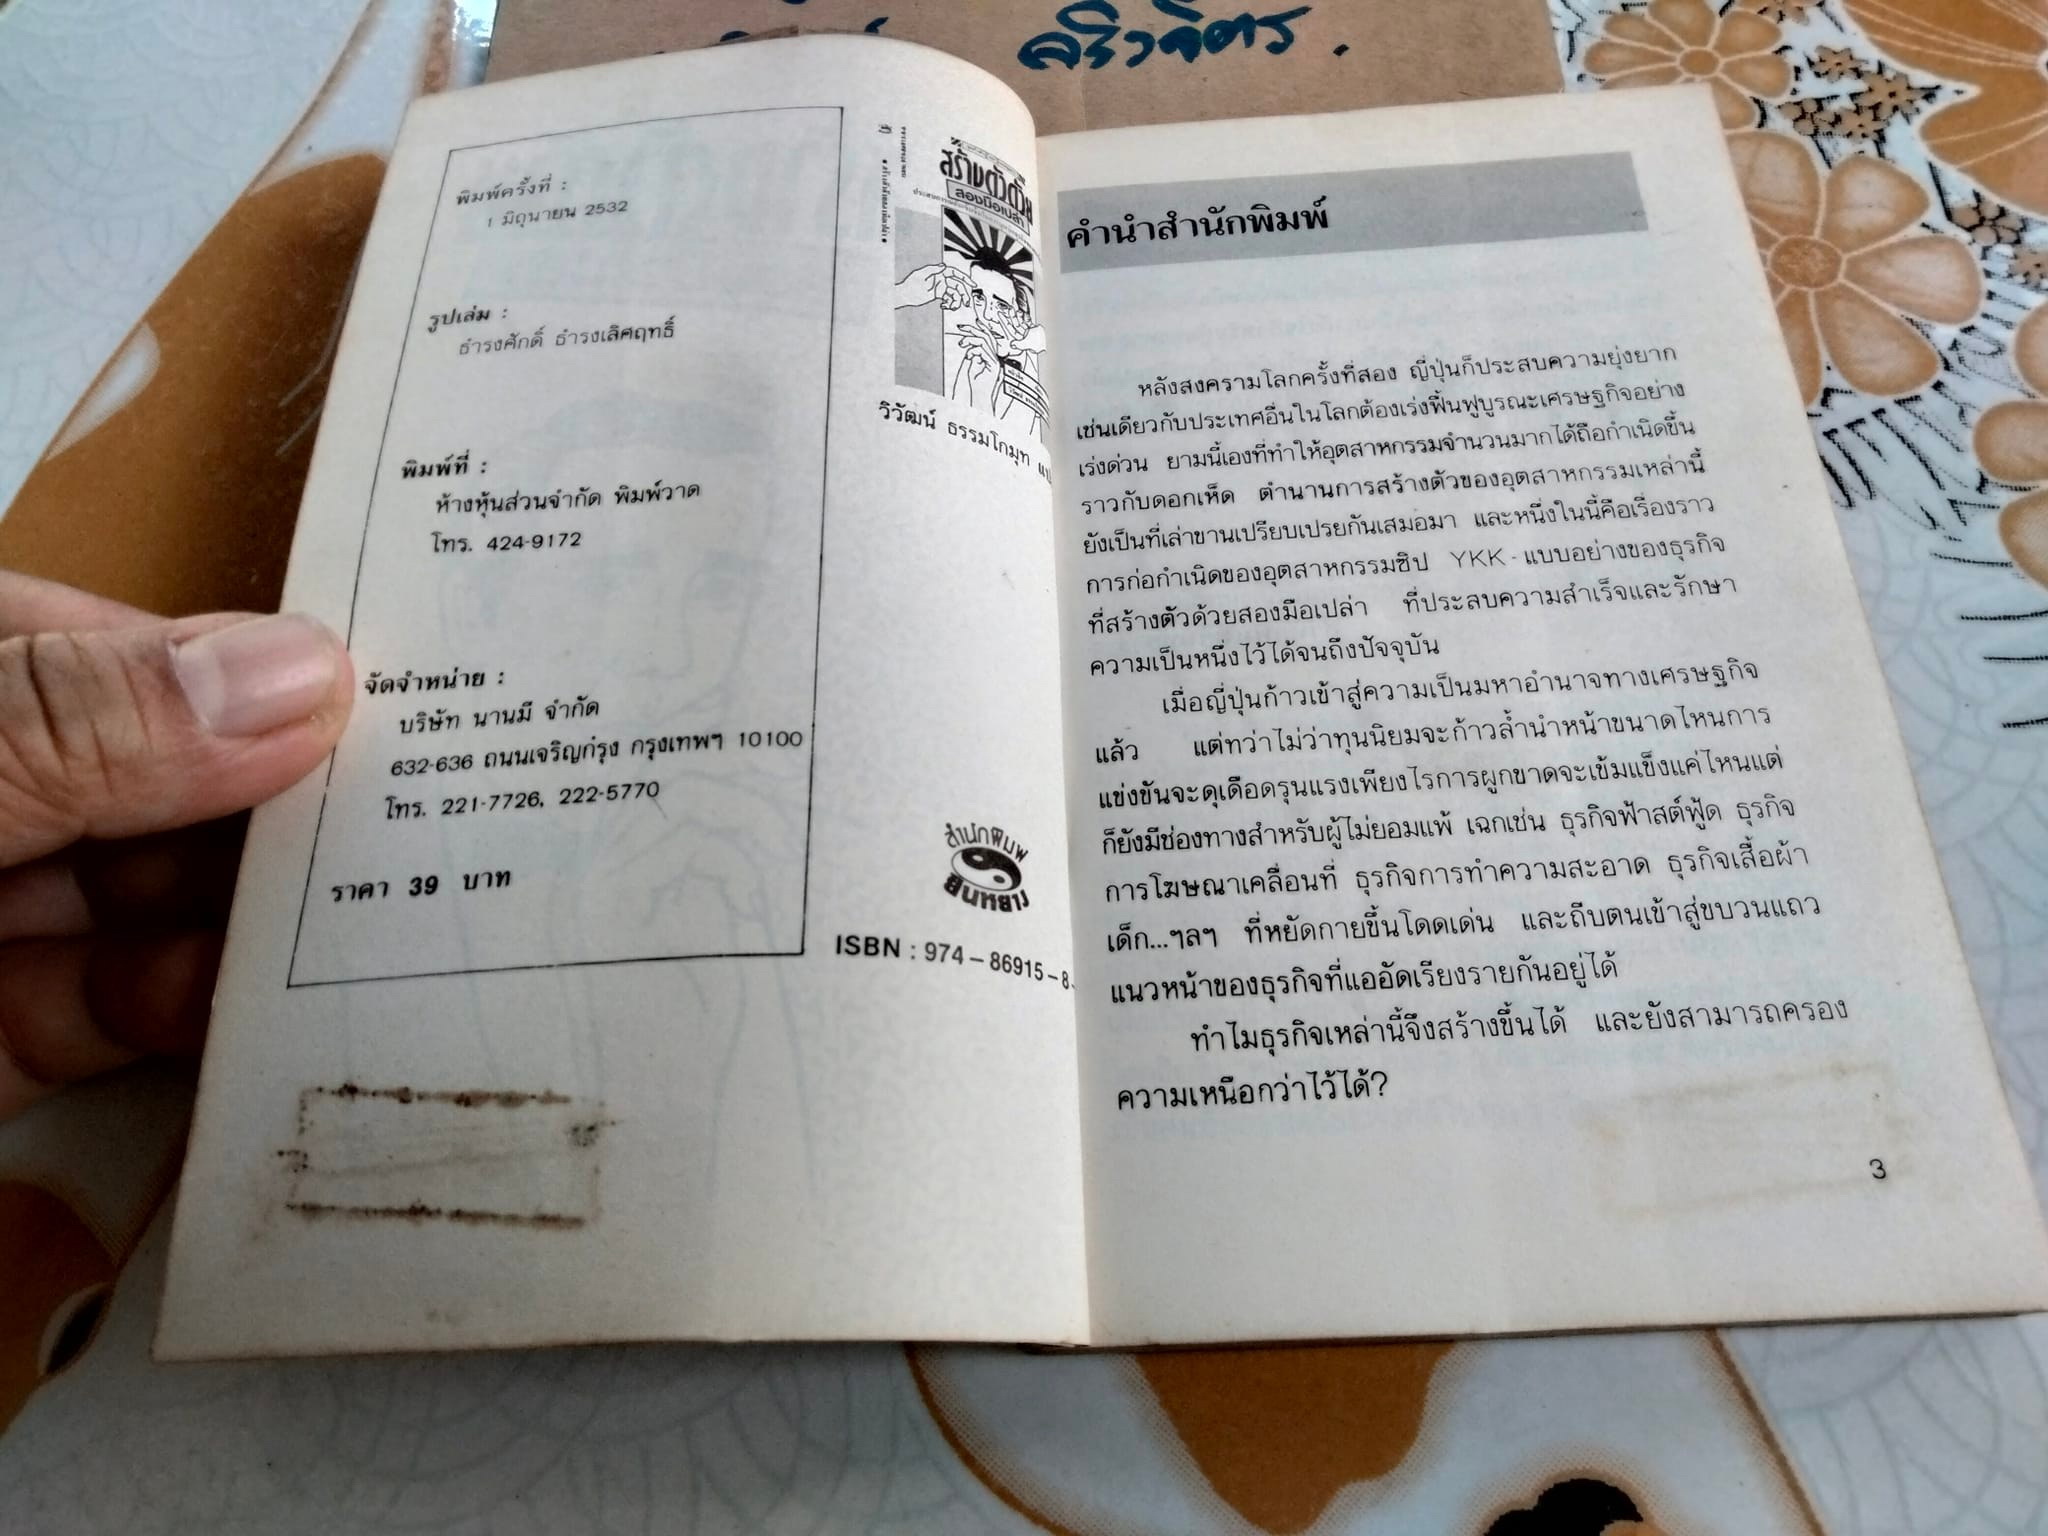 สริวจิตร.
พิมพ์ครั้งที่ :
1 มิถุนายน 2532
รูปเล่ม :
ธำรงศักดิ์ ธำรงเลิศฤทธิ์
พิมพ์ที่ :
ห้างหุ้นส่วนจำกัด พิมพ์วาด
โทร. 424-9172
จัดจำหน่าย :
บริษัท นานมี จำกัด
632-636 ถนนเจริญกรุง กรุงเทพฯ 10100
โทร. 221-7726, 222-5770
ราคา 39 บาท
สร้างตัวด้วย
สองมือเปล่า
วิวัฒน์ ธรรมโกมุท แป
สำนักพิมพ์
ยินหยาง
ISBN : 974-86915-8-
คำนำสำนักพิมพ์
หลังสงครามโลกครั้งที่สอง ญี่ปุ่นก็ประสบความยุ่งยาก
เช่นเดียวกับประเทศอื่นในโลกต้องเร่งฟื้นฟูบูรณะเศรษฐกิจอย่าง
เร่งด่วน ยามนี้เองที่ทำให้อุตสาหกรรมจำนวนมากได้ถือกำเนิดขึ้น
ราวกับดอกเห็ด ตำนานการสร้างตัวของอุตสาหกรรมเหล่านี้
ยังเป็นที่เล่าขานเปรียบเปรยกันเสมอมา และหนึ่งในนี้คือเรื่องราว
การก่อกำเนิดของอุตสาหกรรมซิป YKK - แบบอย่างของธุรกิจ
ที่สร้างตัวด้วยสองมือเปล่า ที่ประสบความสำเร็จและรักษา
ความเป็นหนึ่งไว้ได้จนถึงปัจจุบัน
เมื่อญี่ปุ่นก้าวเข้าสู่ความเป็นมหาอำนาจทางเศรษฐกิจ
แล้ว แต่ทว่าไม่ว่าทุนนิยมจะก้าวล้ำนำหน้าขนาดไหนการ
แข่งขันจะดุเดือดรุนแรงเพียงไรการผูกขาดจะเข้มแข็งแค่ไหนแต่
ก็ยังมีช่องทางสำหรับผู้ไม่ยอมแพ้ เฉกเช่น ธุรกิจฟ้าสต์ฟู้ด ธุรกิจ
การโฆษณาเคลื่อนที่ ธุรกิจการทำความสะอาด ธุรกิจเสื้อผ้า
เด็ก...ฯลฯ ที่หยัดกายขึ้นโดดเด่น และถีบตนเข้าสู่ขบวนแถว
แนวหน้าของธุรกิจที่แออัดเรียงรายกันอยู่ได้
ทำไมธุรกิจเหล่านี้จึงสร้างขึ้นได้ และยังสามารถครอง
ความเหนือกว่าไว้ได้?
3